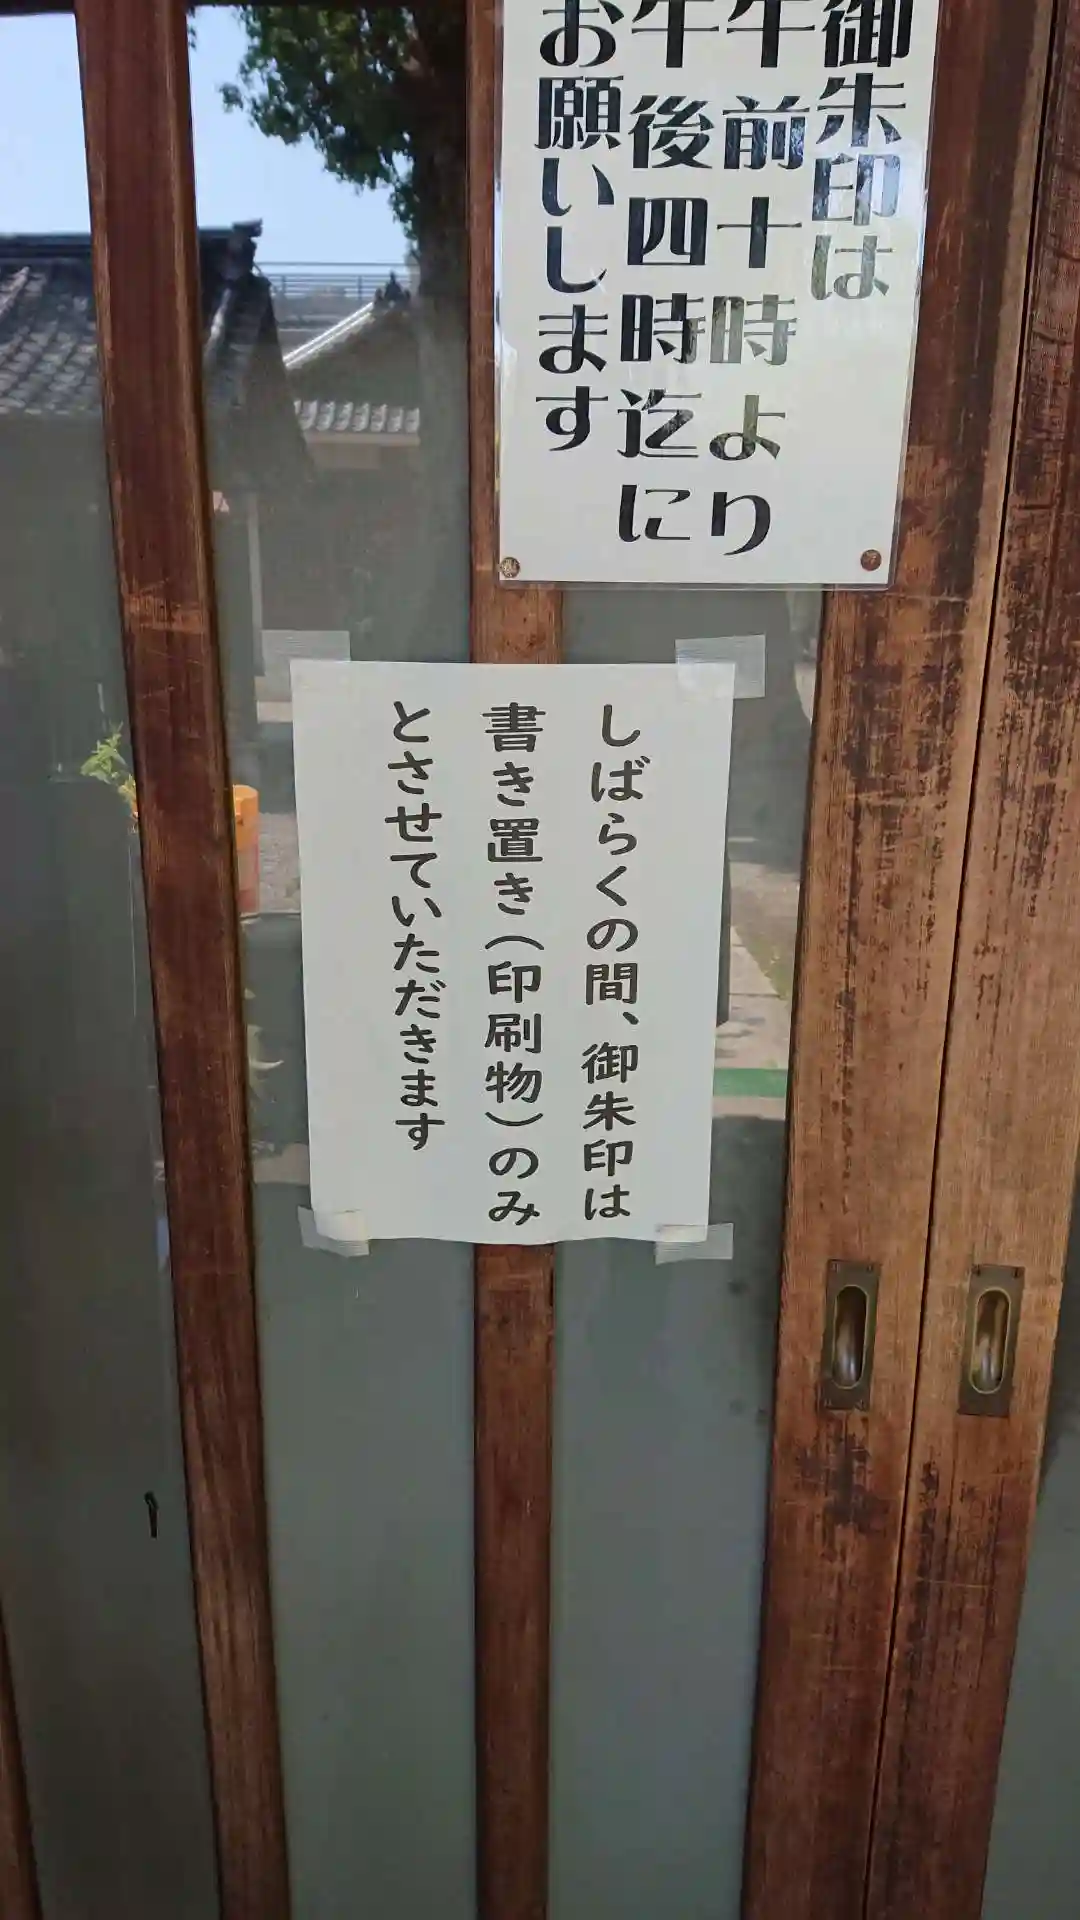 御朱印は
午前十時より
午後四時迄に
お願いします
しばらくの間、御朱印は
書き置き（印刷物）のみ
とさせていただきます